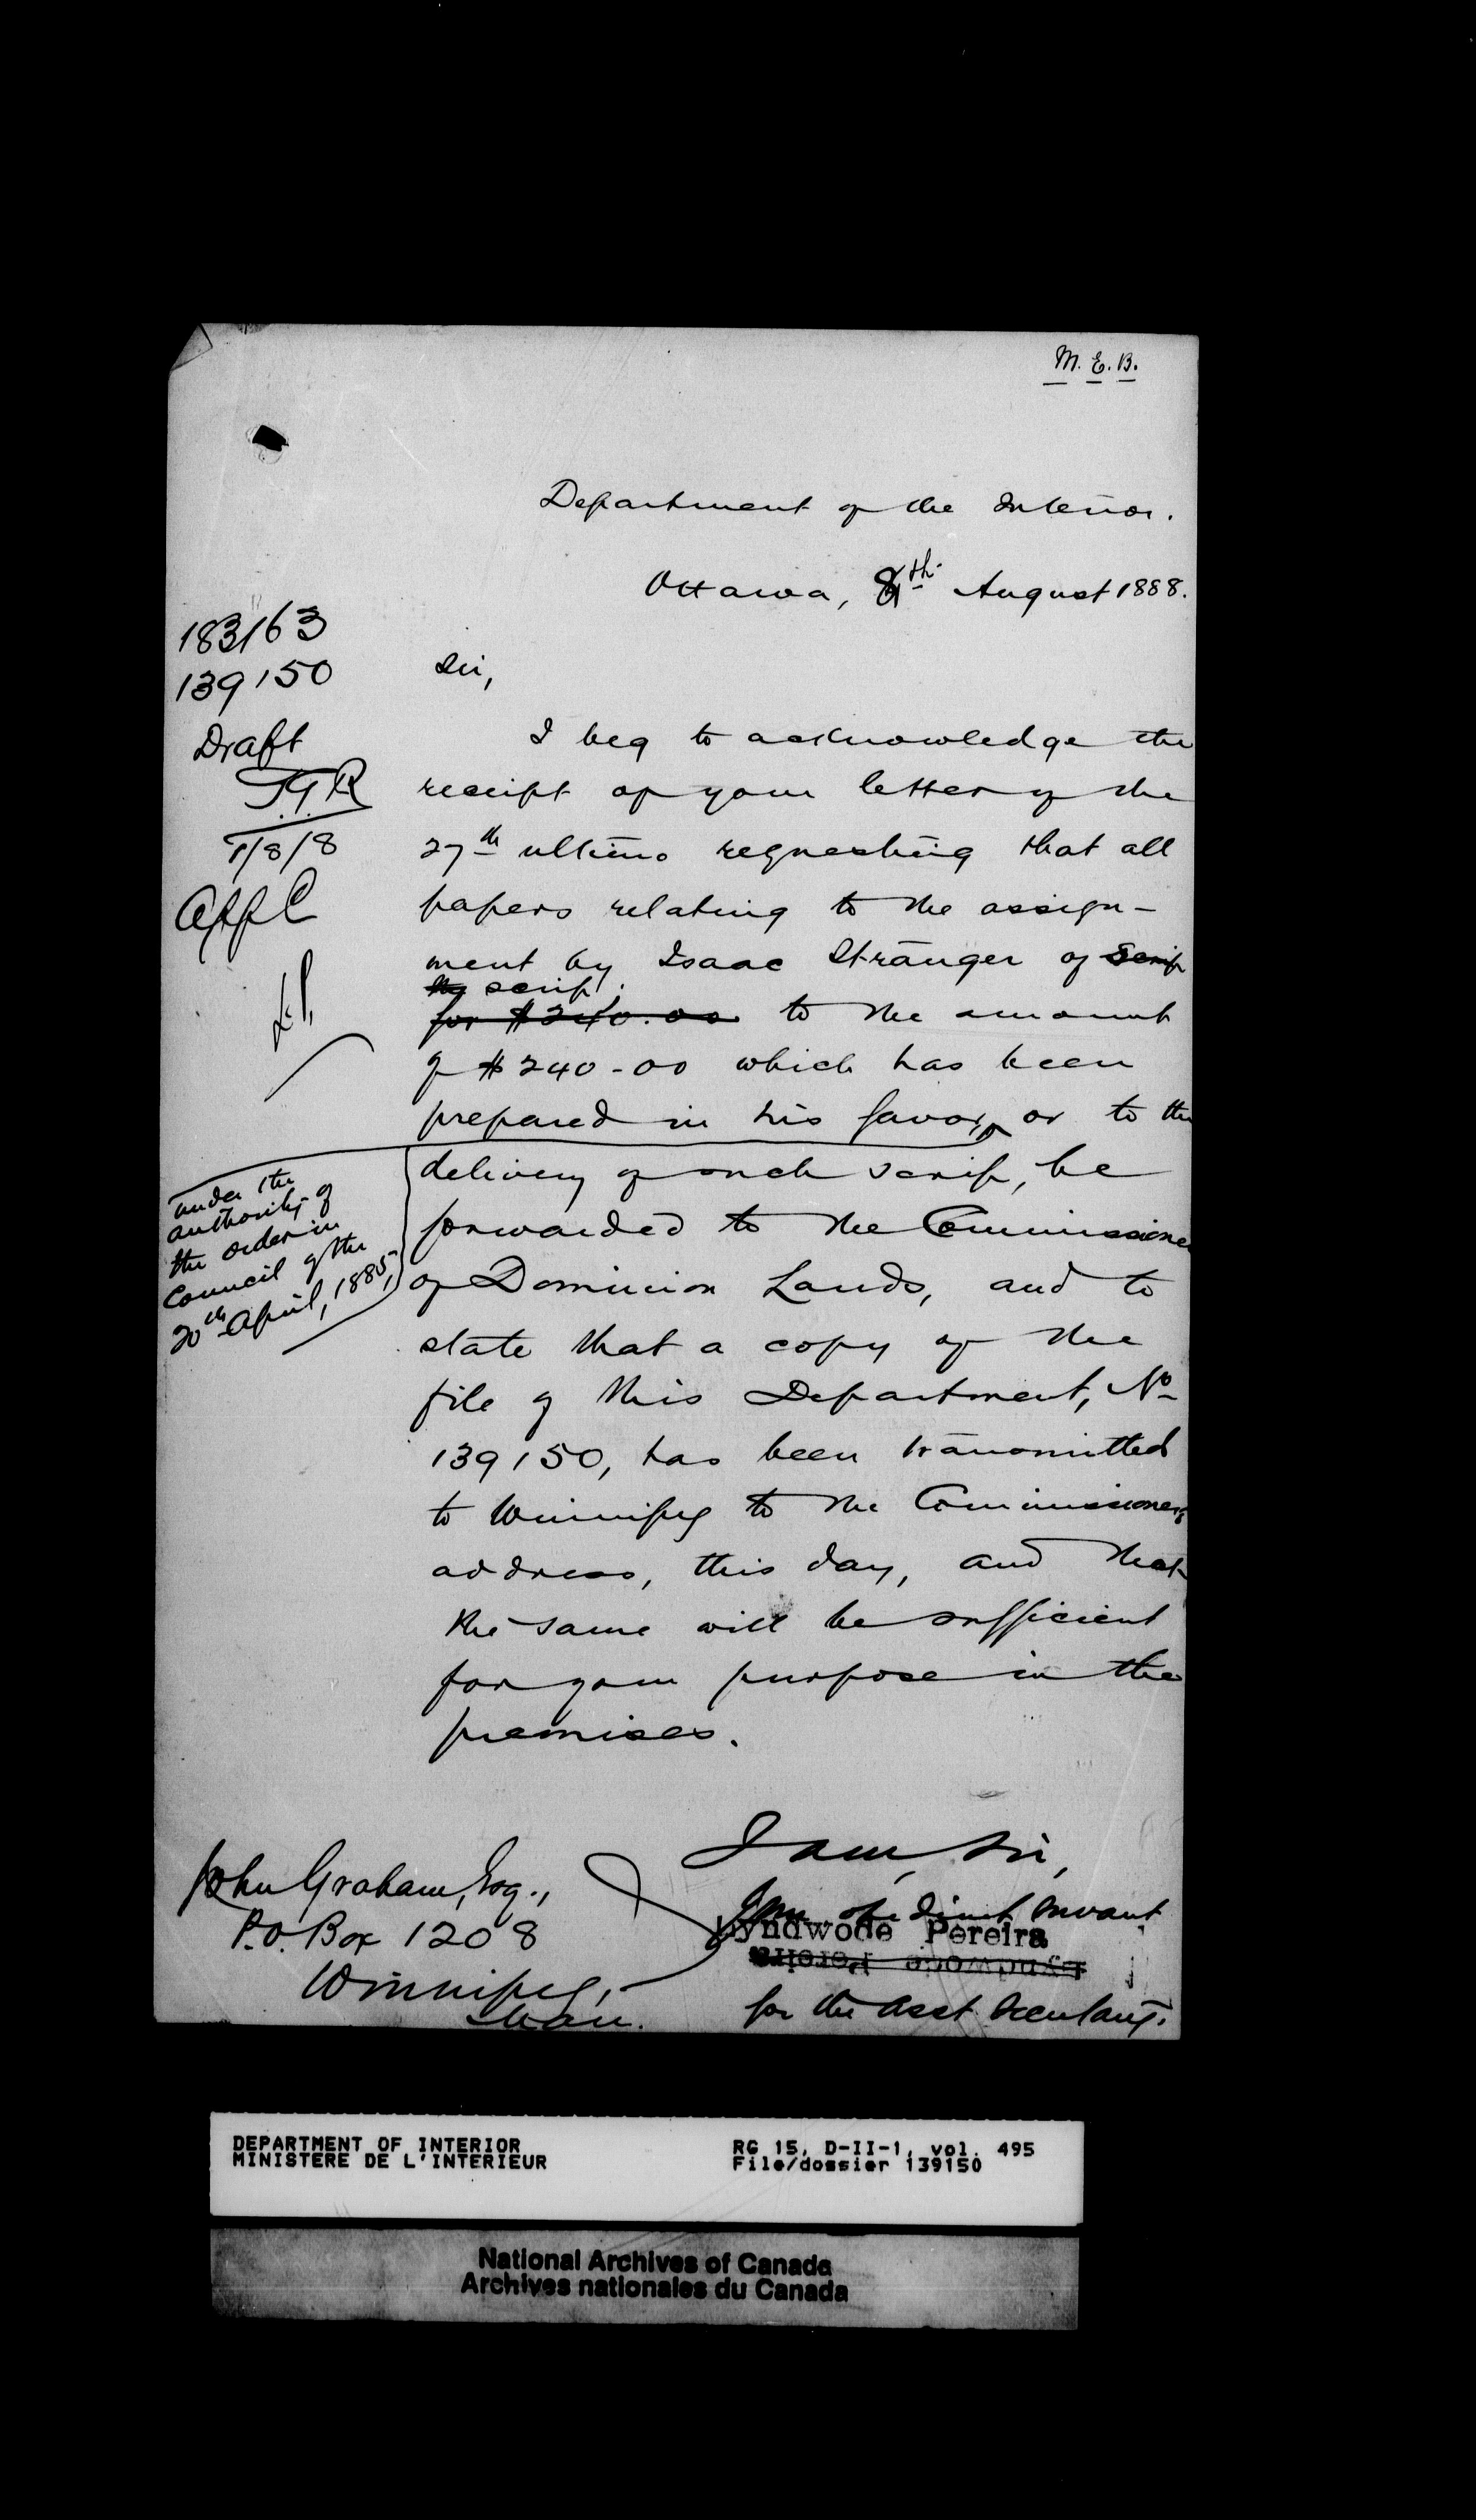 M. E. B.
Department of the Interior.
Ottawa, 8th August 1888.
183163
139150
Draft
1/8/8
Sir,
I beg to acknowledge the
receipt of your letter of the
27th ultimo requesting that all
papers relating to the assign-
ment by Isaac Stranger of scrip
scrip
for $240.00 to the amount
of $240-00 which has been
prepared in his favor, or to the
under the
authority of
the order in
Council of the
20th April, 1885,
delivery of such scrip, be
forwarded to the Commissioner
of Dominion Lands, and to
state that a copy of the
file of this Department, No
139150, has been transmitted
to Winnipeg to the Commissioners
address, this day, and that
the same will be sufficient
for your purpose in the
premises.
I am, Sir,
Your obedient servant
Lyndwode Pereira
Lyndwode Pereira
for the Asst Secretary.
John Graham, Esq.,
P.O. Box 1208
Winnipeg,
Man.
DEPARTMENT OF INTERIOR
MINISTERE DE L'INTERIEUR
RG 15, D-II-1, vol. 495
File/dossier 139150
National Archives of Canada
Archives nationales du Canada